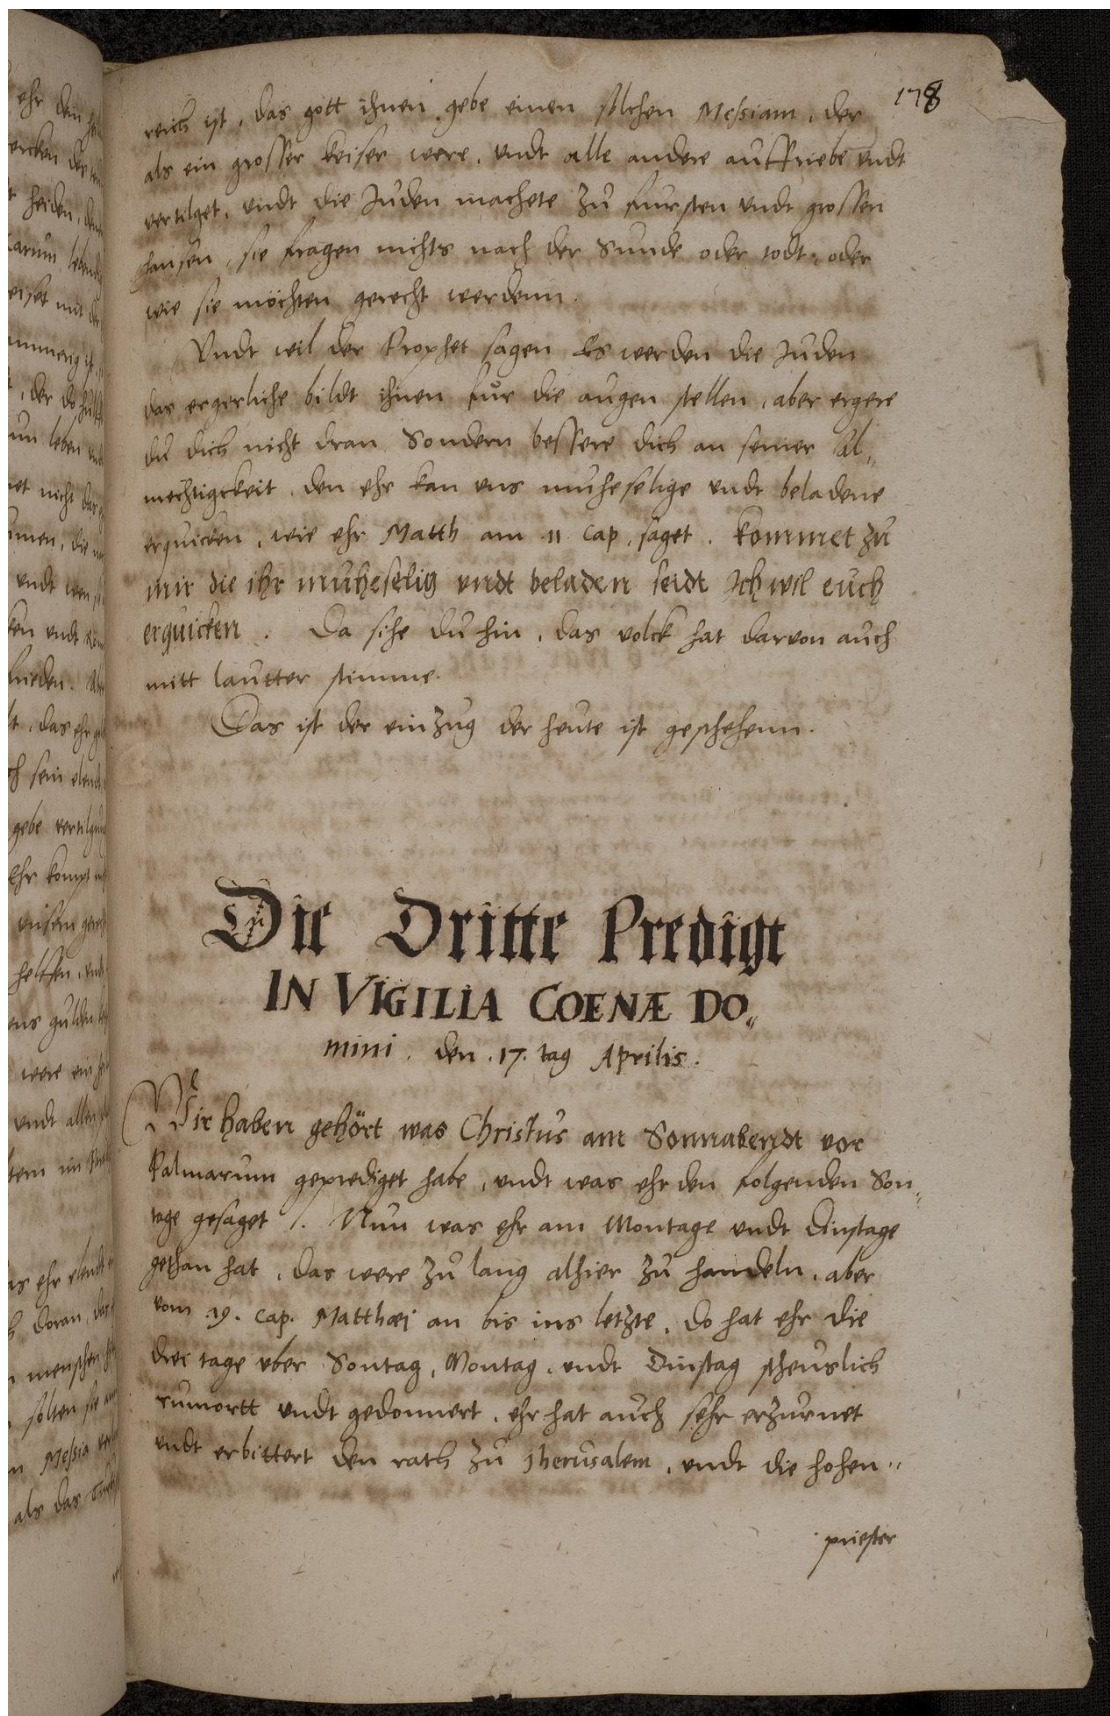 178
reich ist, das gott ihnen gebe einen solchen Messiam, der
als ein grosser keiser were, undt alle andere auffriebe undt
vertilget, undt die Juden machete zu fursten undt grossen
hansen, sie fragen nichts nach der Sunde oder todt, oder
wie sie möchten gerecht werdenn.
Undt wil der Prophet sagen Es werden die Juden
das ergerliche bildt ihnen fur die augen stellen, aber ergere
du dich nicht dran Sondern bessere dich an seiner Al„
mechtigckeit, den ehr kan uns muheselige undt beladene
erquicken, wie ehr Matth am 11 cap. saget. kommet zu
mir die ihr muheselig undt beladen seidt Ich wil euch
erquicken. Da sihe du hin, das volck hat darvon auch
mitt lautter stimme.
Das ist der einzug der heute ist geschehenn.
Die Dritte Predigt
IN VIGILIA COENÆ DO„
mini. den .17. tag Aprilis.
Wir haben gehört was Christus am Sonnabendt vor
Palmarum geprediget habe, undt was ehr den folgenden Son„
tage gesaget /. Nun was ehr am Montage undt Dinstage
gethan hat, das were zu lang alhier zu handeln, aber
vom .19. cap. Matthæi an bis ins letzte, do hat ehr die
drei tage uber Sontag, Montag, undt Dinstag scheuslich
rumortt undt gedonnert, ehr hat auch sehr erzurnet
undt erbittert den rath zu Jherusalem, undt die hohen„
priester